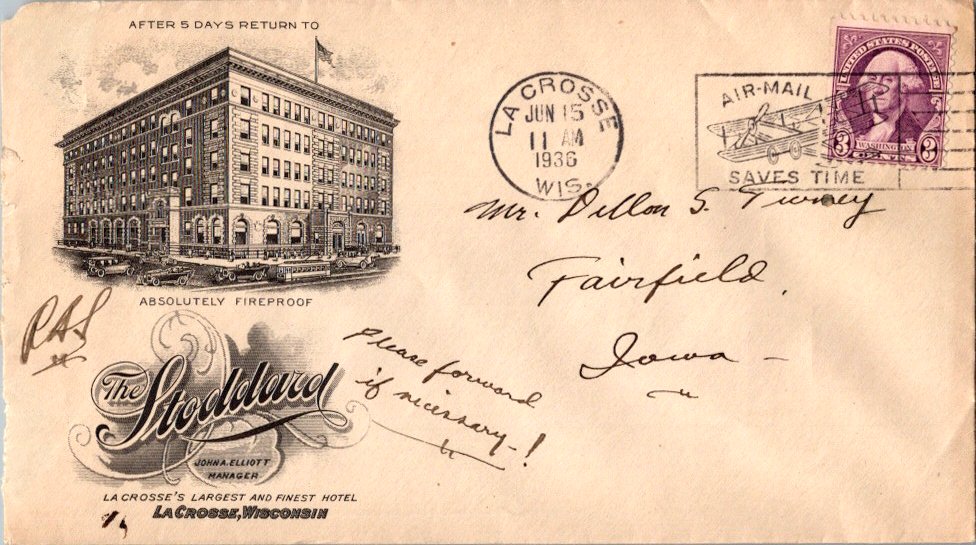 AFTER 5 DAYS RETURN TO
ABSOLUTELY FIREPROOF
The Stoddard
JOHN A. ELLIOTT
MANAGER
LA CROSSE'S LARGEST AND FINEST HOTEL
LA CROSSE, WISCONSIN
RAS
LA CROSSE
JUN 15
11 AM
1936
WIS.
AIR-MAIL
SAVES TIME
UNITED STATES POSTAGE
WASHINGTON
3 CENTS 3
Mr. Dillon S. Turney
Fairfield,
Iowa -
Please forward
if necissary - !